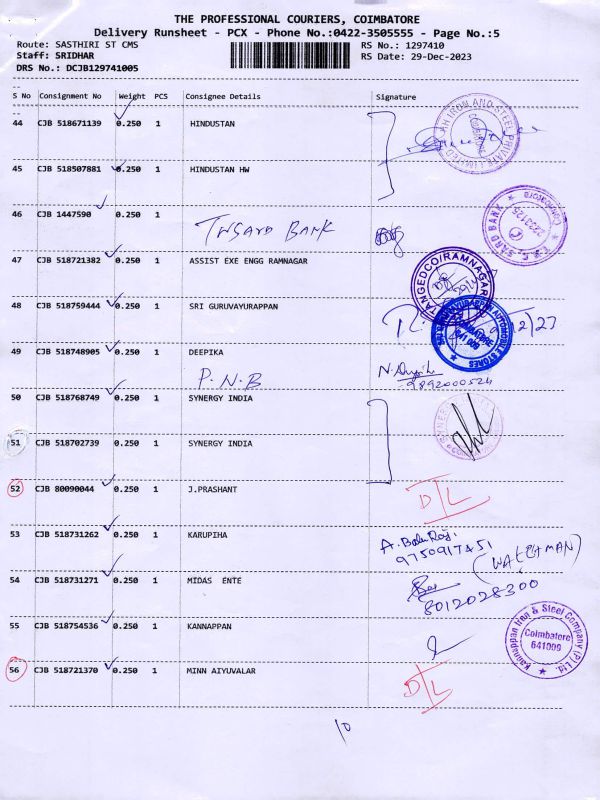 THE PROFESSIONAL COURIERS, COIMBATORE
Delivery Runsheet - PCX - Phone No.:0422-3505555 - Page No.:5
Route: SASTHIRI ST CMS RS No.: 1297410
Staff: SRIDHAR RS Date: 29-Dec-2023
DRS No.: DCJB129741005
S No Consignment No Weight PCS Consignee Details Signature
44 CJB 518671139 0.250 1 HINDUSTAN
IRON AND STEEL PRIVATE LIMITED
COIMBATORE
45 CJB 518507881 0.250 1 HINDUSTAN HW
46 CJB 1447590 0.250 1
TNSARD BANK
BANK
47 CJB 518721382 0.250 1 ASSIST EXE ENGG RAMNAGAR
TANGEDCO/RAMNAGAR
48 CJB 518759444 0.250 1 SRI GURUVAYURAPPAN
SRI GURUVAYURAPPAN AUTOMOBILE STORES
COIMBATORE
641 009
49 CJB 518748905 0.250 1 DEEPIKA
P.N.B
9892000524
50 CJB 518768749 0.250 1 SYNERGY INDIA
51 CJB 518702739 0.250 1 SYNERGY INDIA
52 CJB 80090044 0.250 1 J.PRASHANT
D/L
53 CJB 518731262 0.250 1 KARUPIHA
A. Balu Raj.
9750917451
(WATCHMAN)
54 CJB 518731271 0.250 1 MIDAS ENTE
8012028300
55 CJB 518754536 0.250 1 KANNAPPAN
Kannappan Iron & Steel Company (P) Ltd.
Coimbatore
641009
56 CJB 518721370 0.250 1 MINN AIYUVALAR
D/L
10